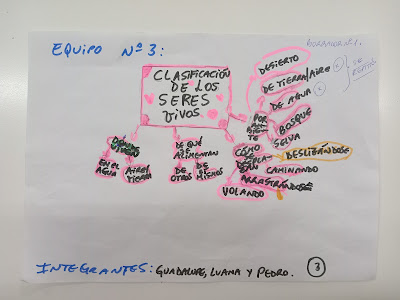 EQUIPO Nº 3:
CLASIFICACIÓN
DE LOS
SERES
VIVOS
DESIERTO
DE TIERRA/AIRE
DE AGUA
BOSQUE
SELVA
POR
AM
BIEN
TE
DÓNDE
VIVEN
EN EL
AGUA
AIRE/
TIERRA
DE QUÉ
SE
ALIMENTAN
DE
OTROS
DE
SÍ
MISMOS
CÓMO
SE
DESPLA
ZAN
DESLIZÁNDOSE
CAMINANDO
ARRASTRÁNDOSE
VOLANDO
INTEGRANTES: GUADALUPE, LUANA Y PEDRO.
3